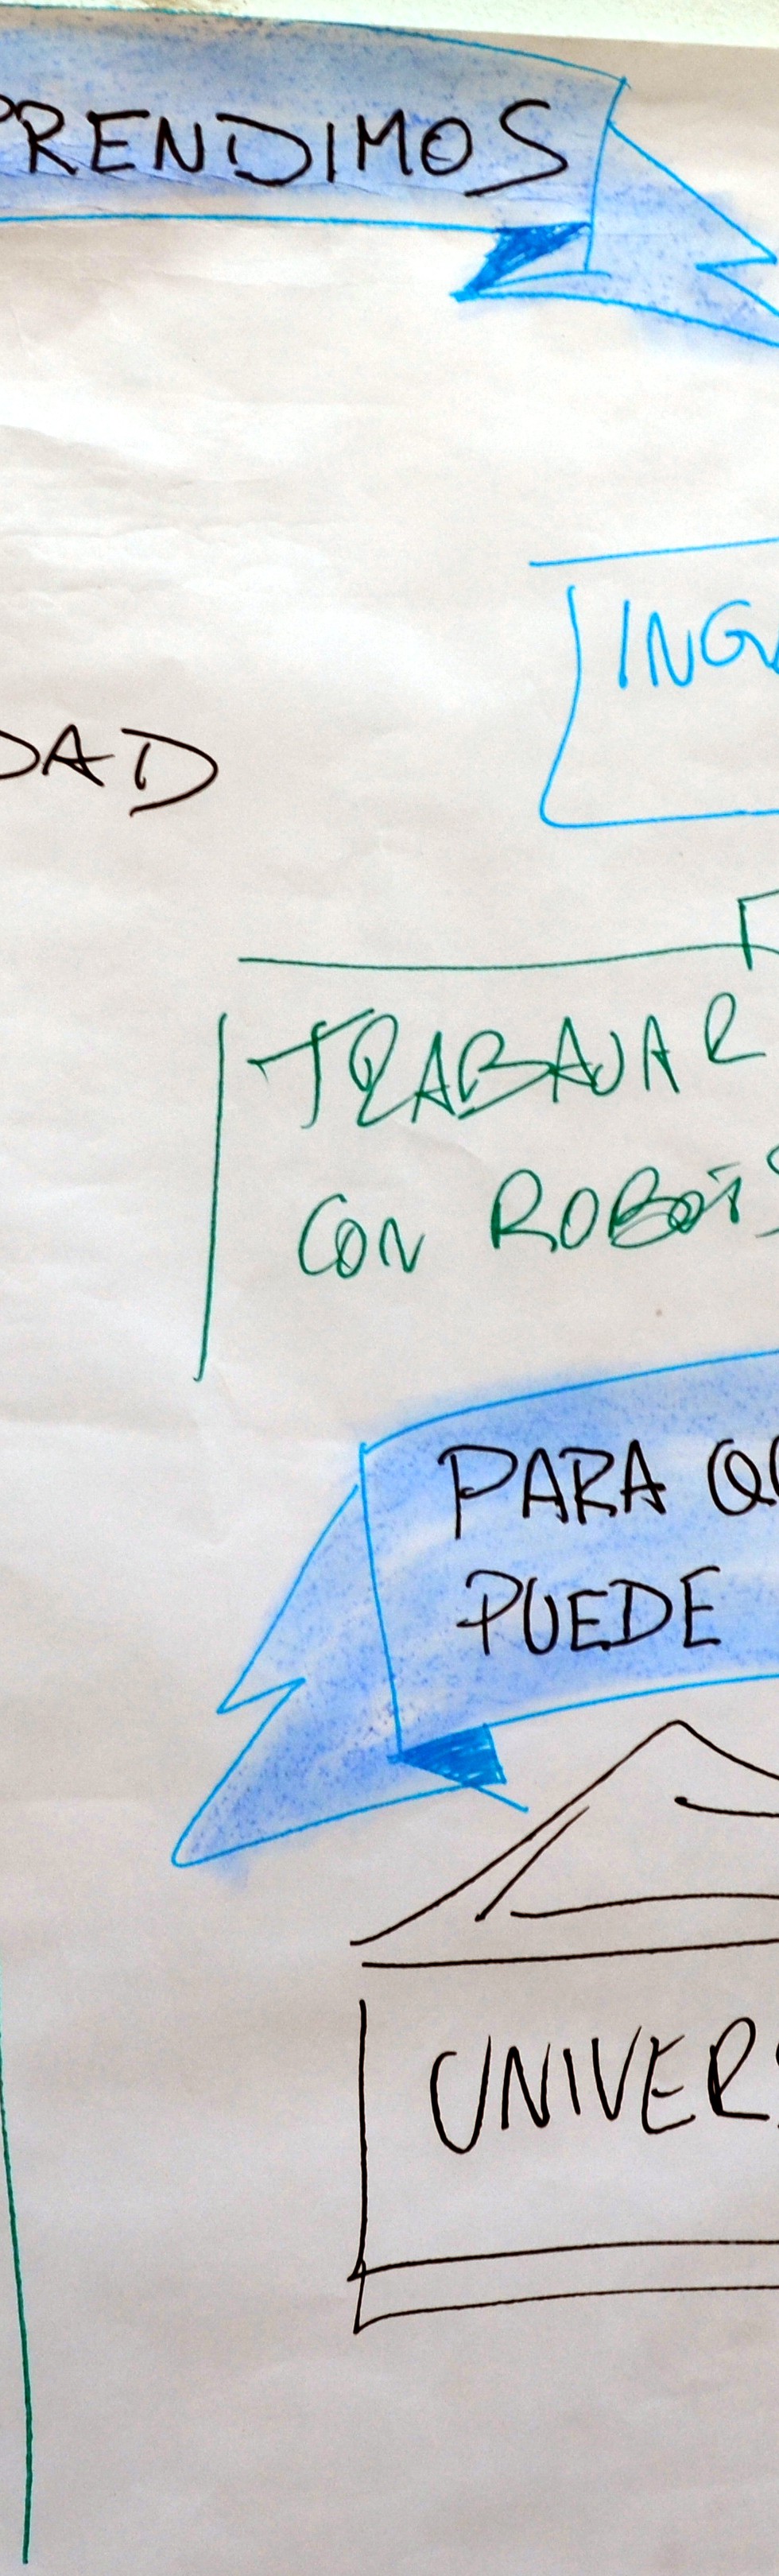 PRENDIMOS
ING
DAD
TRABAJAR
CON ROBOTS
PARA QU
PUEDE
UNIVERS